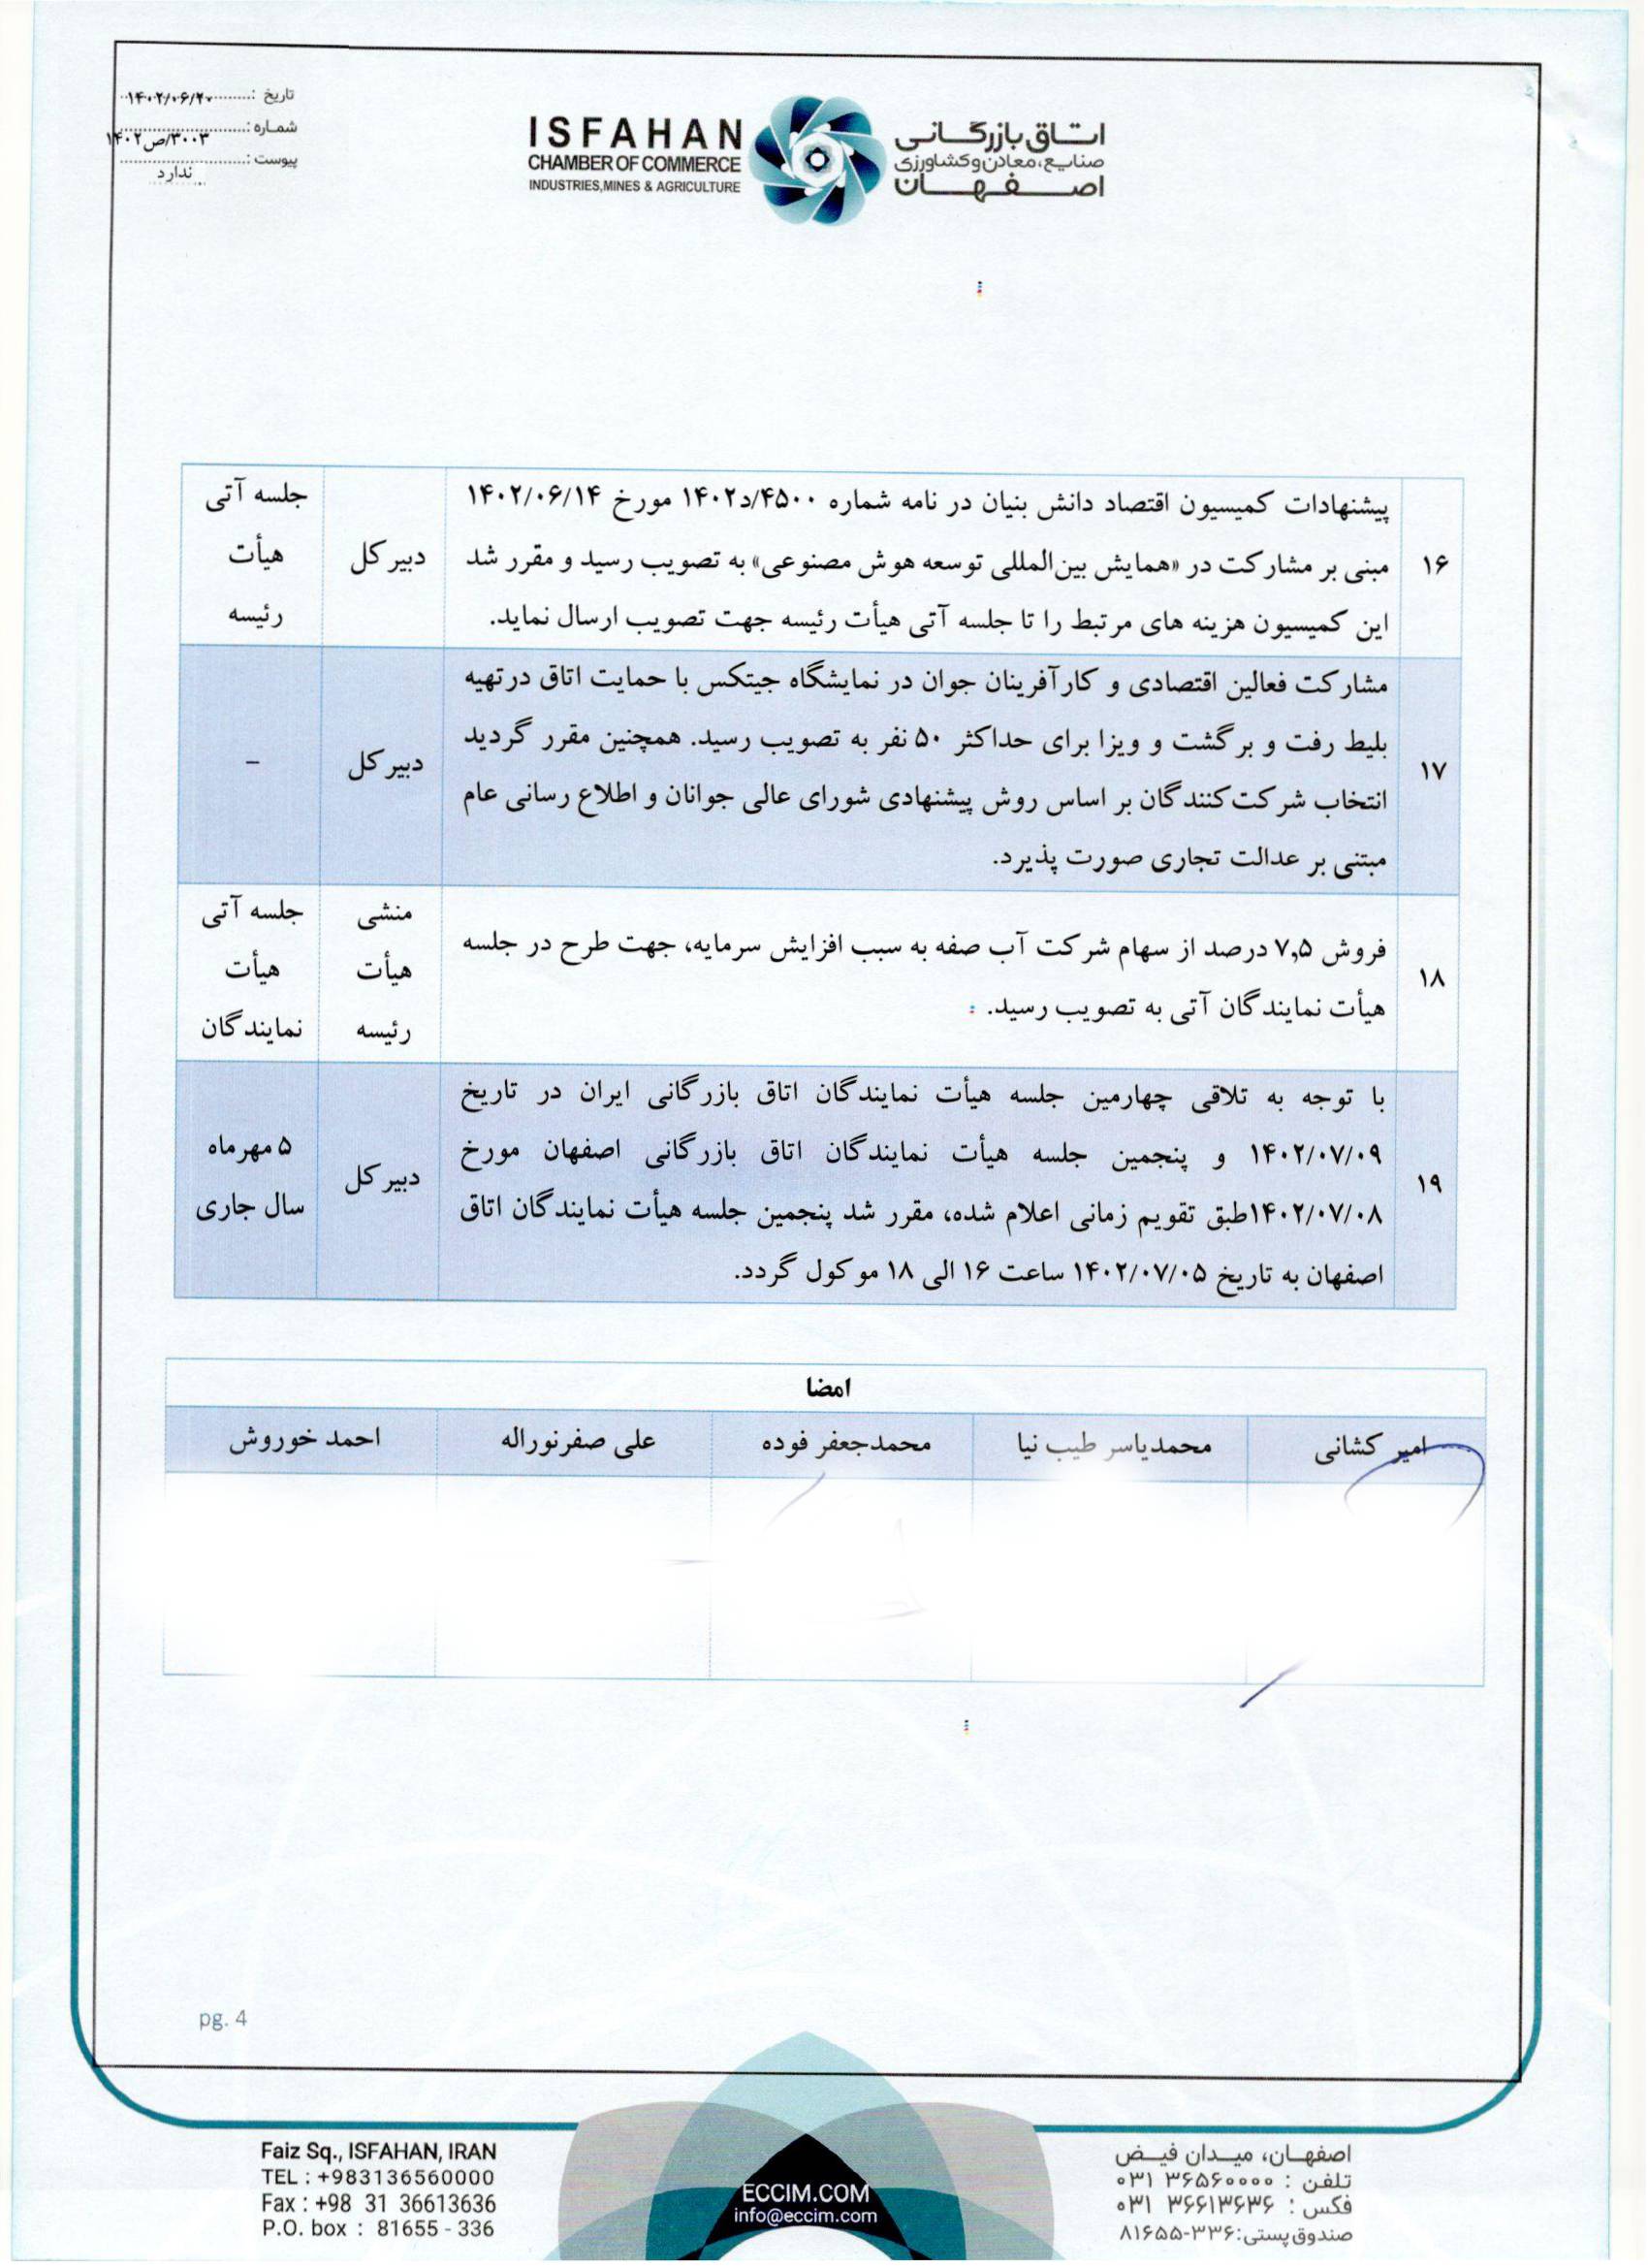 تاریخ : ۱۴۰۲/۰۶/۲۰
شماره : ۳۰۰۳/ص۱۴۰۲
پیوست : ندارد
ISFAHAN
CHAMBER OF COMMERCE
INDUSTRIES, MINES & AGRICULTURE
اتاق بازرگانی
صنایع، معادن و کشاورزی
اصفهان
۱۶
پیشنهادات کمیسیون اقتصاد دانش بنیان در نامه شماره ۴۵۰۰/د۱۴۰۲ مورخ ۱۴۰۲/۰۶/۱۴
مبنی بر مشارکت در «همایش بین‌المللی توسعه هوش مصنوعی» به تصویب رسید و مقرر شد
این کمیسیون هزینه های مرتبط را تا جلسه آتی هیأت رئیسه جهت تصویب ارسال نماید.
دبیر کل
جلسه آتی
هیأت
رئیسه
۱۷
مشارکت فعالین اقتصادی و کارآفرینان جوان در نمایشگاه جیتکس با حمایت اتاق درتهیه
بلیط رفت و برگشت و ویزا برای حداکثر ۵۰ نفر به تصویب رسید. همچنین مقرر گردید
انتخاب شرکت‌کنندگان بر اساس روش پیشنهادی شورای عالی جوانان و اطلاع رسانی عام
مبتنی بر عدالت تجاری صورت پذیرد.
دبیر کل
–
۱۸
فروش ۷٫۵ درصد از سهام شرکت آب صفه به سبب افزایش سرمایه، جهت طرح در جلسه
هیأت نمایندگان آتی به تصویب رسید.
منشی
هیأت
رئیسه
جلسه آتی
هیأت
نمایندگان
۱۹
با توجه به تلاقی چهارمین جلسه هیأت نمایندگان اتاق بازرگانی ایران در تاریخ
۱۴۰۲/۰۷/۰۹ و پنجمین جلسه هیأت نمایندگان اتاق بازرگانی اصفهان مورخ
۱۴۰۲/۰۷/۰۸طبق تقویم زمانی اعلام شده، مقرر شد پنجمین جلسه هیأت نمایندگان اتاق
اصفهان به تاریخ ۱۴۰۲/۰۷/۰۵ ساعت ۱۶ الی ۱۸ موکول گردد.
دبیر کل
۵ مهرماه
سال جاری
امضا
امیر کشانی
محمدیاسر طیب نیا
محمدجعفر فوده
علی صفرنوراله
احمد خوروش
pg. 4
Faiz Sq., ISFAHAN, IRAN
TEL : +983136560000
Fax : +98 31 36613636
P.O. box : 81655 - 336
ECCIM.COM
info@eccim.com
اصفهان، میدان فیض
تلفن : ۳۶۵۶۰۰۰۰ ۰۳۱
فکس : ۳۶۶۱۳۶۳۶ ۰۳۱
صندوق پستی: ۳۳۶-۸۱۶۵۵